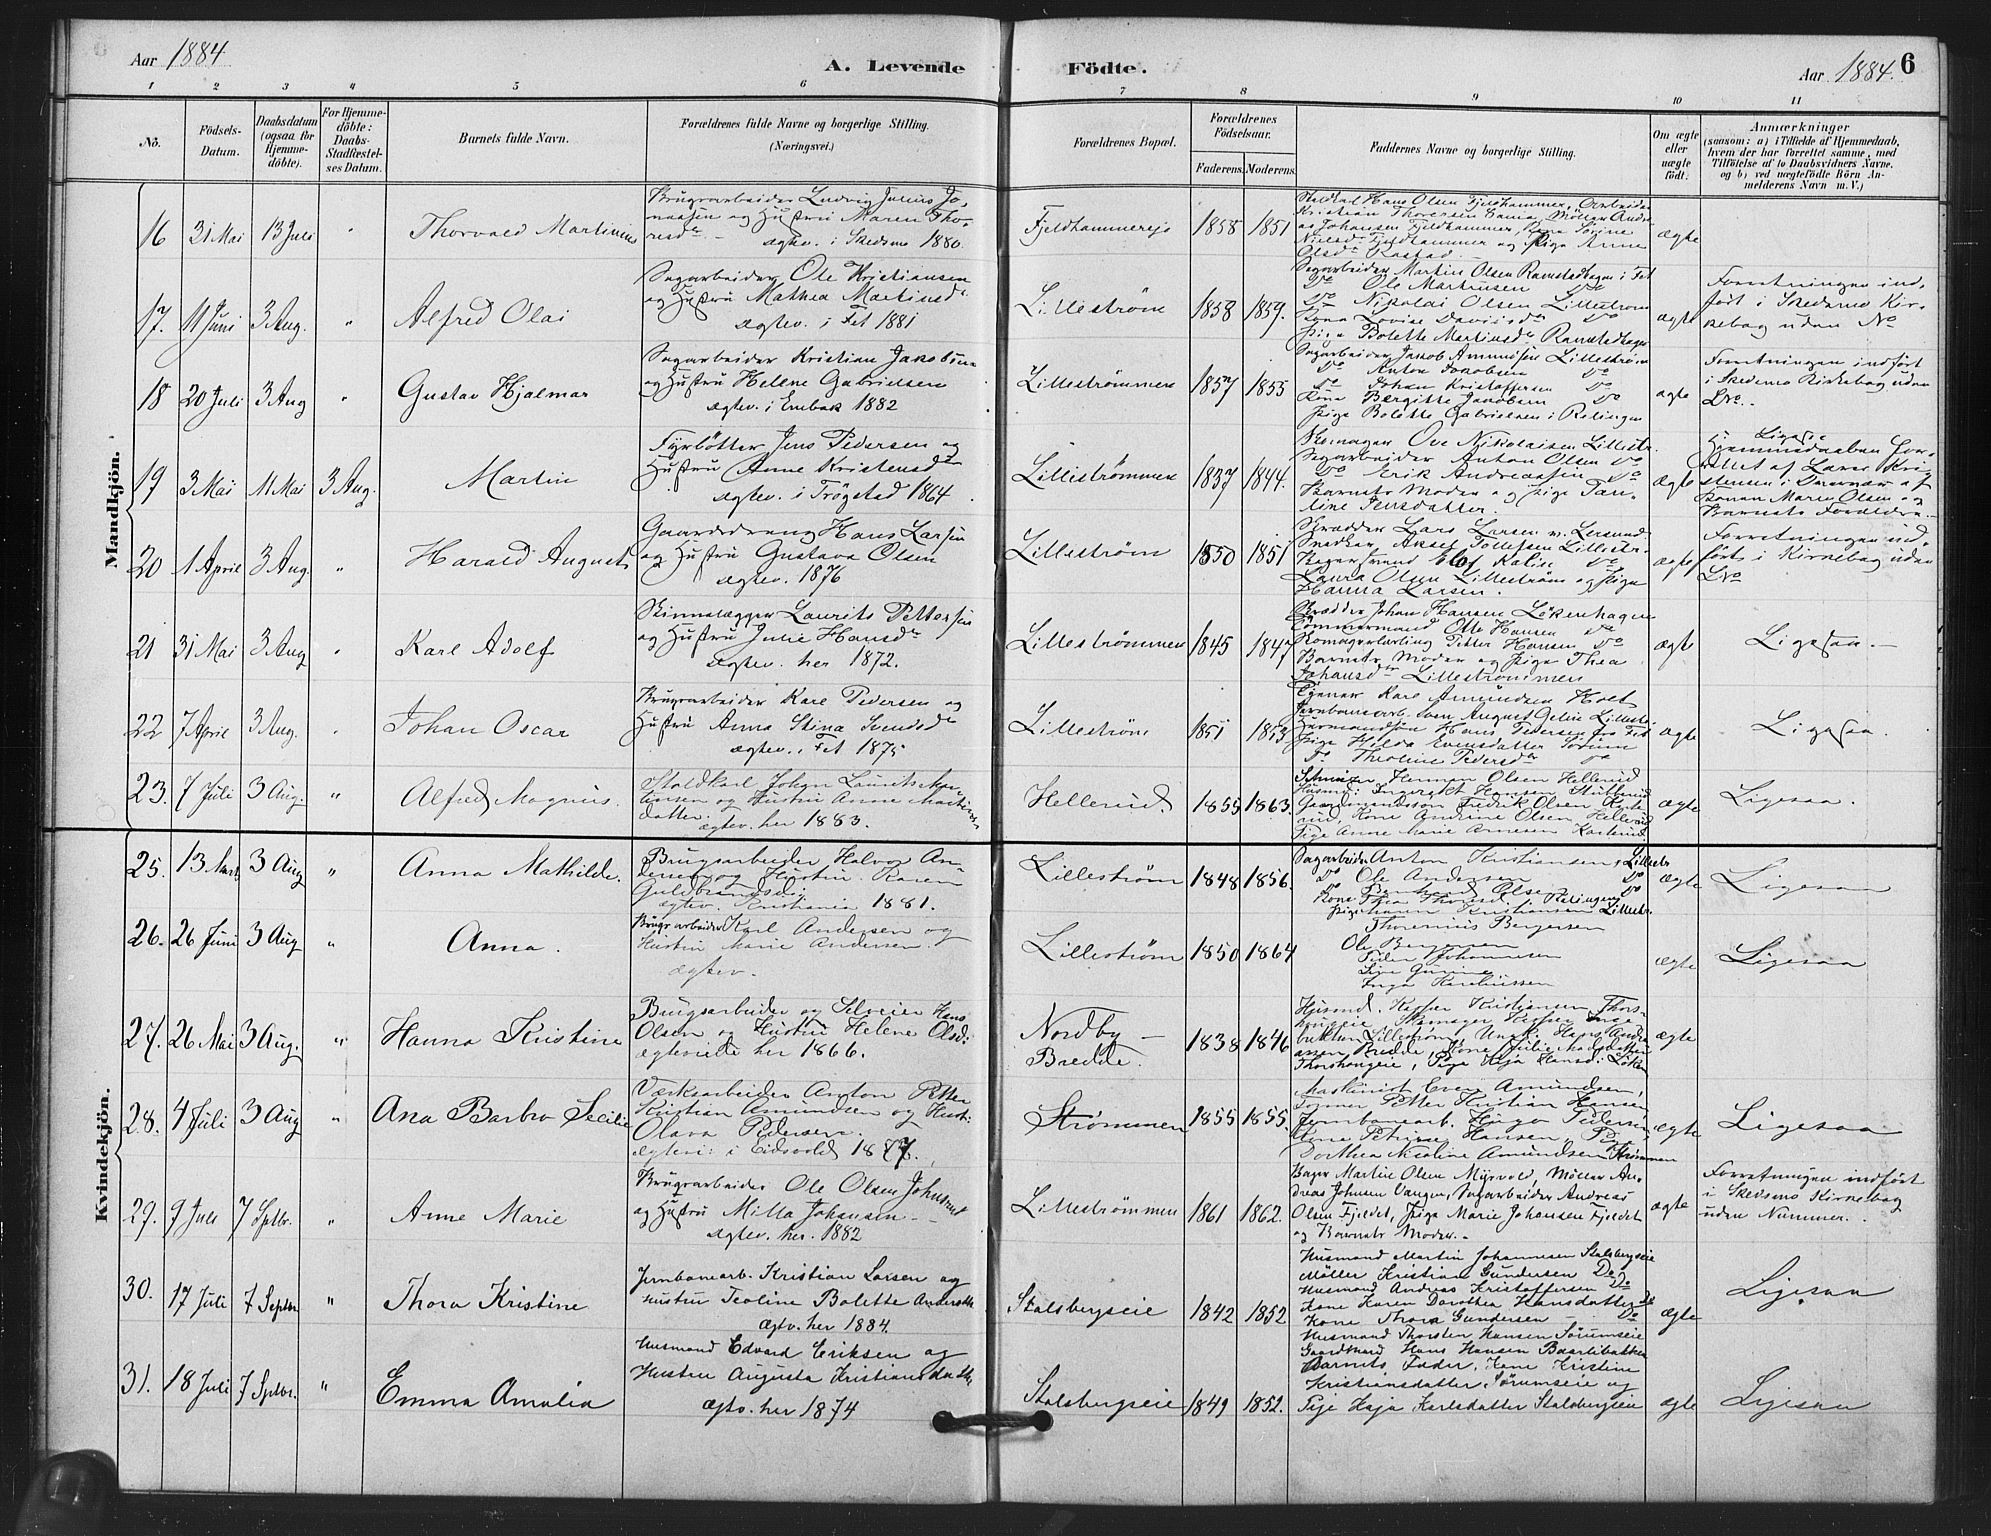 Aar 1884
A. Levende
Födte.
Aar 1884.
6
1 2 3 4 5 6 7 8 9 10 11
No.
Födsels-
Datum.
Daabsdatum
(ogsaa for
Hjemme-
döbte).
For Hjemme-
döbte:
Daabs-
Stadfæstel-
ses Datum.
Barnets fulde Navn.
Forældrenes fulde Navne og borgerlige Stilling.
(Næringsvei.)
Forældrenes Bopæl.
Forældrenes
Födselsaar.
Faderens. Moderens.
Faddernes Navne og borgerlige Stilling.
Om ægte
eller
uægte
födt.
Anmærkninger
(saasom: a) i Tilfælde af Hjemmedaab,
hvem der har forrettet samme, med
Tilföielse af to Daabsvidners Navne,
og b) ved uægtefödte Börn An-
melderens Navn m. V.)
Mandkjön.
16 31 Mai 13 Juli " Thorvald Martinius
Brugsarbeider Ludvig Julius Jo-
nassen og Hustru Maren Tho-
resdr
ægtev. i Skedsmo 1880.
Fjeldhammerejе 1858 1851
Kristian Thoresen
Johansen Fjeldhammer
Fjeldhammer og Pige Anne
ægte
17. 11 Juni 3 Aug. " Alfred Olai
Sagarbeider Ole Kristiansen
og Hustru Mathea Martinsdr
ægtev. i Fet 1881
Lillestrøm 1858 1859.
Sagarbeider Martin Olsen Ramstadhagen i Fet
Do Ole Martinsen Do
Do Nikolai Olsen Lillestrøm
Kone Lovise Davidsdr Do
Pige Bolette Martinsdr Ramstadhagen
ægte
Forretningen ind-
ført i Skedsmo Kir-
kebog uden No
18 20 Juli 3 Aug " Gustav Hjalmar
Sagarbeider Kristian Jakobsen
og Hustru Helene Gabrielsen
ægtev. i Enebak 1882
Lillestrømmen 1857 1855
Sagarbeider Jakob Amundsen Lillestrøm
Do Anton Jakobsen Do
Do Johan Kristoffersen Do
Kone Bergitte Jakobsen Do
Pige Bolette Gabrielsen i Rælingen
ægte
Forretningen indført
i Skedsmo Kirkebog uden
No.
19 3 Mai 11 Mai 3 Aug. Martin
Fyrbøtter Jens Pedersen og
Hustru Anne Kristensdr
ægtev. i Trøgstad 1864
Lillestrømmen 1837 1844.
Skomager Ove Nikolaisen Lillestr.
Sagarbeider Anton Olsen Do
Do Erik Andreassen Do
Barnets Moder og Pige Pau-
line Jensdatter.
ægte
Ligesaa
Hjemmedaaben for-
rettet af Lærer Kri-
stensen i Nærvær af
Konen Maren Olsen og
Barnets Forældre.
20 1 April 3 Aug. " Harald August
Gaardsdreng Hans Larsen
og Hustru Gustava Olsen
ægtev. 1876
Lillestrøm 1850 1851
Skrædder Lars Larsen
Snedker Aksel Tollefsen Lillestr.
Laura Olsen Lillestrøm og Pige
Hanna Larsen.
ægte
Forretningen ind-
ført i Kirkebog uden
No
21 31 Mai 3 Aug " Karl Adolf
Skinnelægger Laurits Pettersen
og Hustru Julie Hansdr
ægtev. her 1872.
Lillestrømmen 1845 1847
Skrædder Johan Hansen Løkenhagen
Tømmermand Otto Hansen Do
Skomagerlærling Petter Hansen Do
Barnets Moder og Pige Thea
Johansdr Lillestrømmen
ægte
Ligesaa.
22 7 April 3 Aug. " Johan Oscar
Brugsarbeider Karl Pedersen og
Hustru Anna Stina Svendsdr
ægtev. i Fet 1875
Lillestrøm 1851 1853
Karl Amundsen Holt
Jernbanearb. Sven August Lillestr.
Hans Pedersen fra Fet
Pige Hilda Evensdatter Sørum
Do Theoline Pedersdr Do
ægte
Ligesaa.
23. 7 Juli 3 Aug. " Alfred Magnus.
Staldkarl Johan Laurits Mar-
tinsen og Hustru Anne Martins-
datter.
ægtev. her 1883.
Hellerud 1855 1863.
Herman Olsen Hellerud
Husmd. Ingebrigt Hansen
Gaardmandssøn Fredrik Olsen
Kone Andrine Olsen Hellerud
Pige Anne Marie Arnesen
ægte
Ligesaa.
Kvindekjön.
25. 13 Mart 3 Aug " Anna Mathilde.
Brugsarbeider Halvor An-
dersen og Hustru Karen
Guldbrandsd:
ægtev. Kristiania 1881.
Lillestrøm 1848 1856.
Sagarbeider Anton Kristiansen, Lillestr
Do Ole Andersen Do
Do Bernhard Olsen Do
Kone Thea Thorsd. i Rælingen
Pige Karen Kristiansen Lillestr.
ægte
Ligesaa
26. 26 Juni 3 Aug " Anna.
Brugsarbeider Karl Andersen og
Hustru Marie Andersen.
ægtev.
Lillestrøm 1850 1864
Thorenius Bergersen
Ole Bergersen
Peder Johannesen
Inga
ægte
Ligesaa
27. 26 Mai 3 Aug. " Hanna Kristine
Brugsarbeider og Selveier Hans
Olsen og Hustru Helene Olsd:
ægteviede her 1866.
Nordby –
Bredde. 1838 1846
Kristiansen Thors-
haugeie, Skomager
Lillestrøm, Ungk: Hans Andre-
assen Bredde, Kone Julie
Thorshaugeie, Pige Kaja Hansd: Løken
ægte
28. 4 Juli 3 Aug " Ana Barbro Secilie
Værksarbeider Anton Petter
Kristian Amundsen og Hust:
Olava Pedersen.
ægtev: i Eidsvold 1877.
Strømmen 1855 1855.
Maskinist Even Amundsen,
Petter Kristian Hansen
Jernbanearb. Hugo Pedersen,
Kone Petrine Hansen, P.
Dorthea Nicoline Amundsen Strømmen
ægte
Ligesaa
29. 9 Juli 7 Sptbr. " Anne Marie
Brugsarbeider Ole Olsen
og Hustru Milla Johansen
ægtev. her. 1882
Lillestrømmen 1861 1862.
Bager Martin Olsen Myrvol, Møller An-
dreas Johnsen Vangen, Sagarbeider Andreas
Olsen Fjeldet, Pige Marie Johansen Fjeldet
og Barnets Moder.
ægte
Forretningen indført
i Skedsmo Kirkebog
uden Nummer.
30. 17 Juli 7 Septbr " Thora Kristine
Jernbanearb. Kristian Larsen og
Hustru Teoline Bolette Andersdtr
ægtv. her 1884.
Stalsbergseie 1842 1852
Husmand Martin Johannesen Stalsbergseie
Møller Kristian Gundersen Do
Husmand Andreas Kristoffersen Do
Kone Karen Dorothea Hansdatter Do
Kone Thora Gundersen Do
ægte
Ligesaa
31. 18 Juli 7 Sptbr. " Emma Amalia
Husmand Edvard Eriksen og
Hustru Augusta Kristiansdattr.
ægtv. her 1874
Stalsbergseie 1849 1852.
Husmand Thorsten Hansen Sørumseie
Gaardmand Hans Hansen
Barnets Fader, Kone Kristine
Kristiansdatter Sørumseie og
Pige Kaja Karlsdatter Stalsbergseie
ægte
Ligesaa